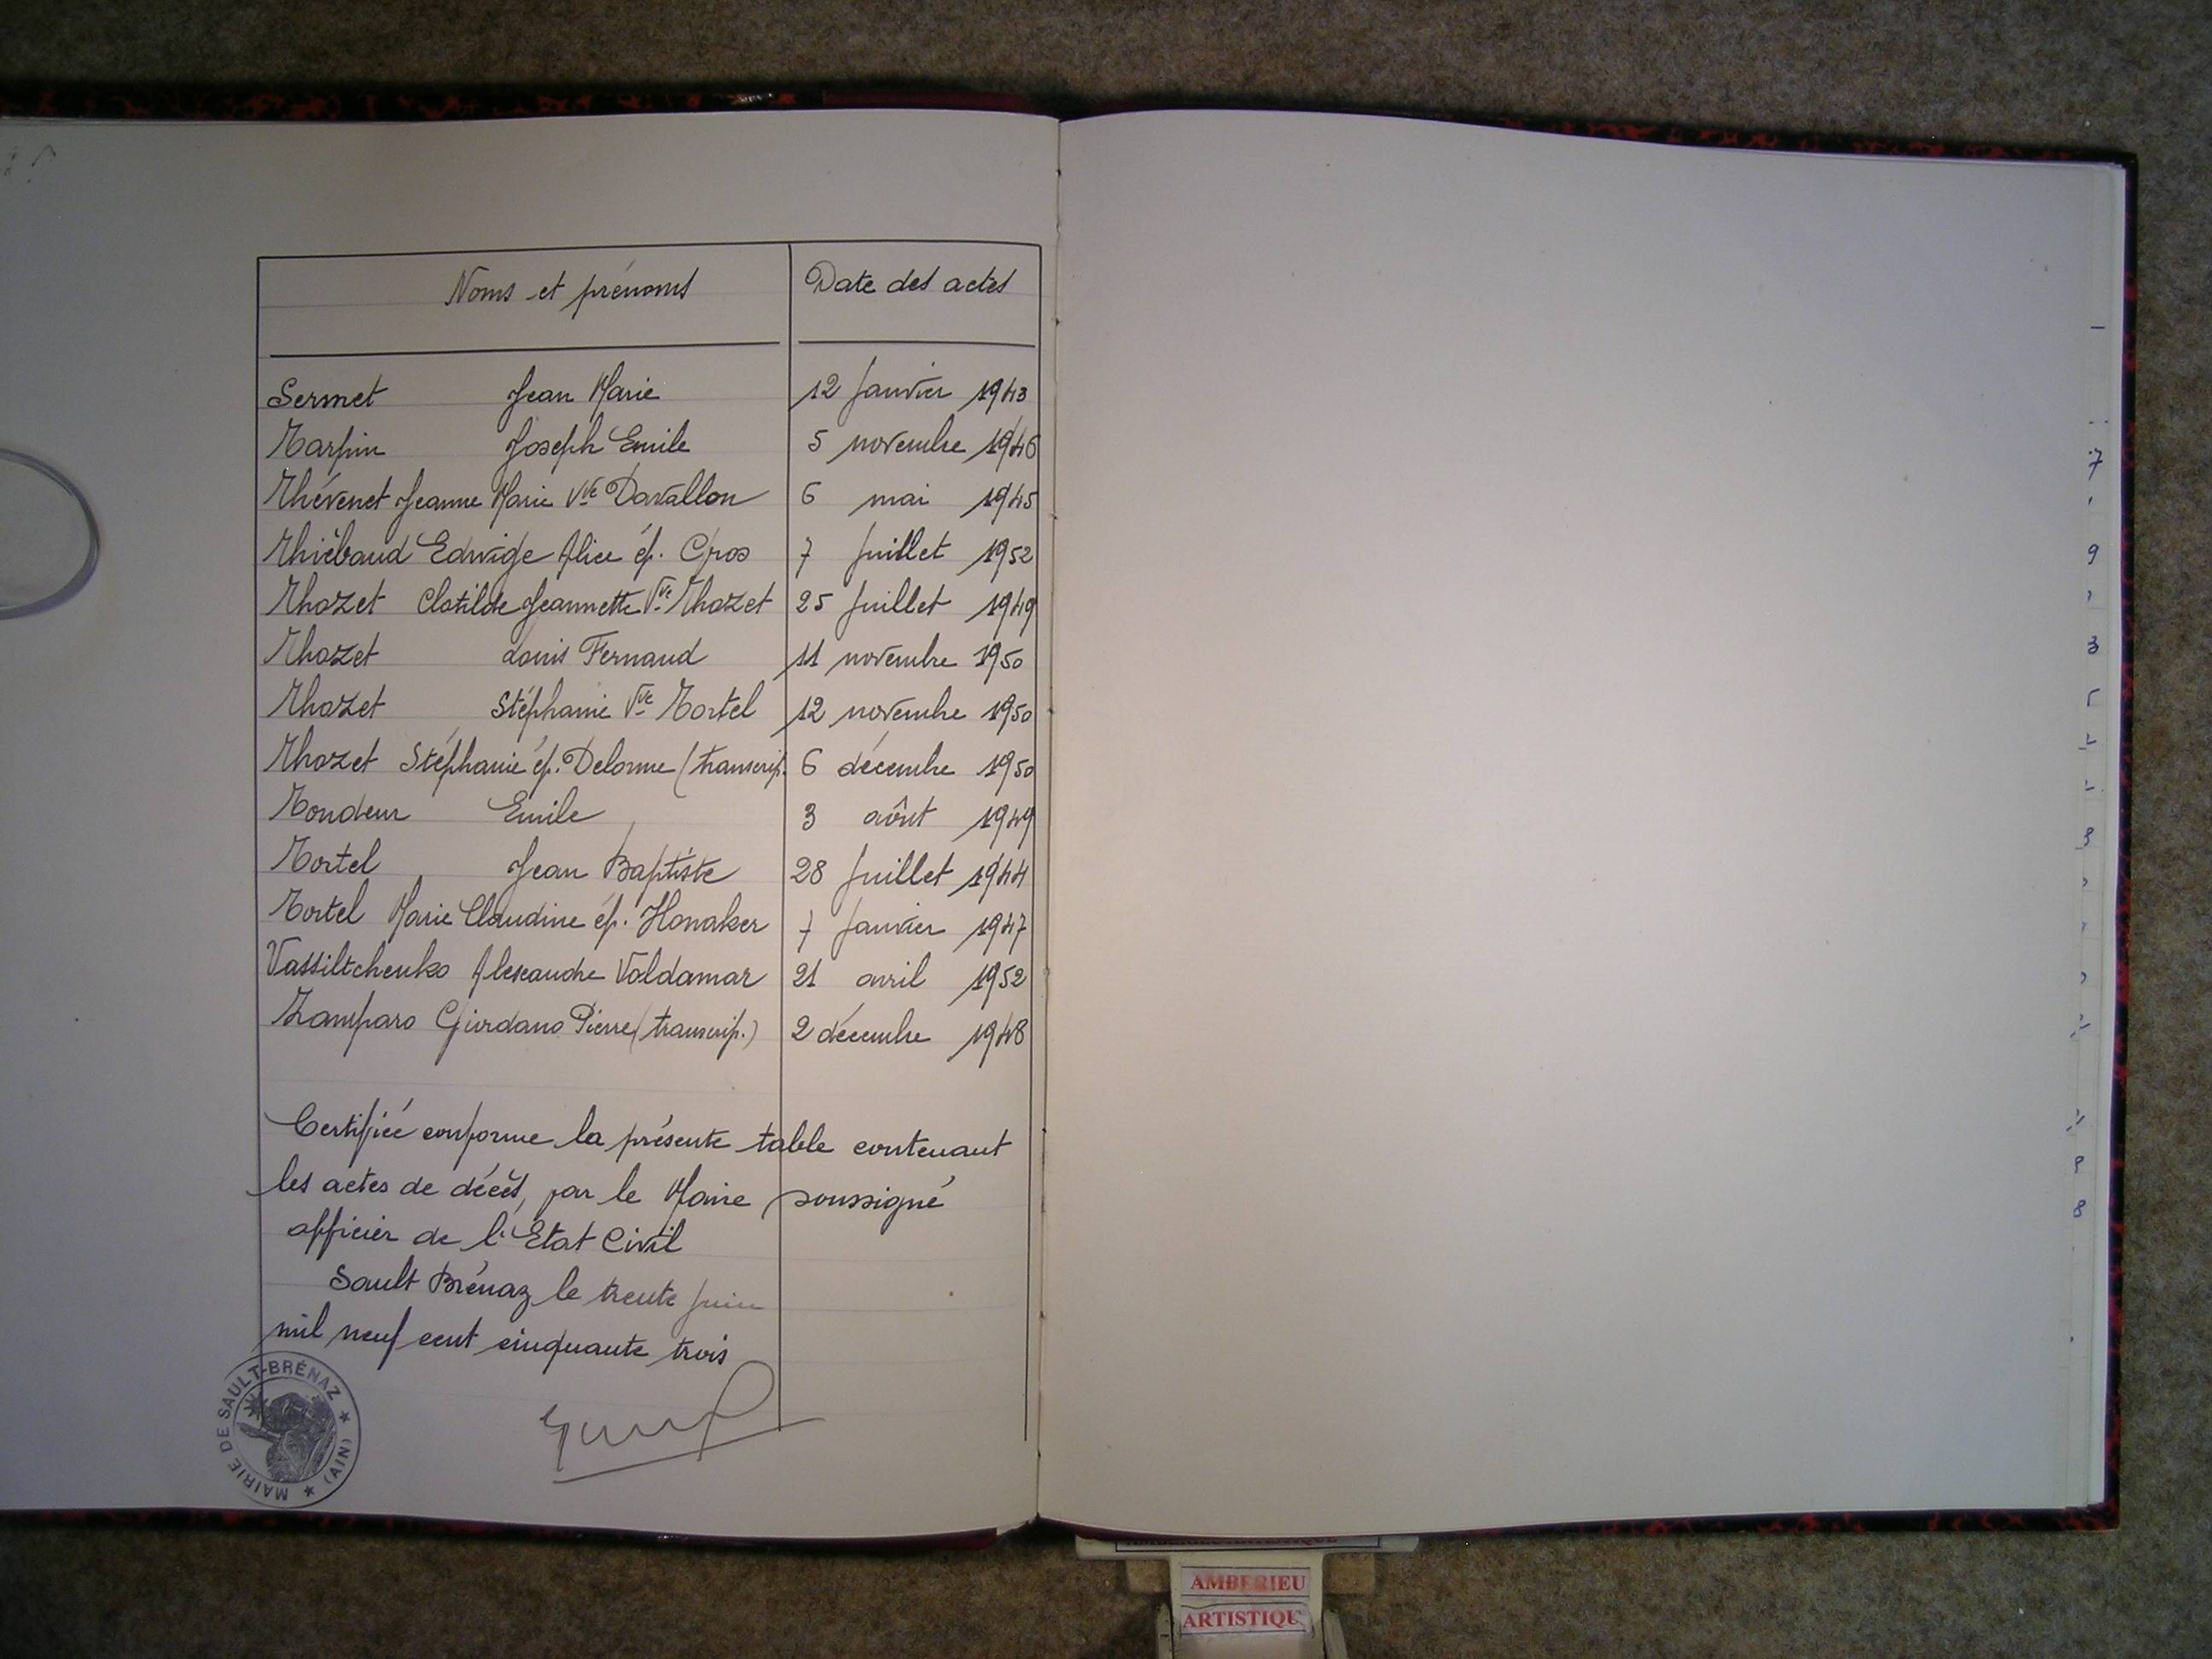 Noms et prénoms Date des actes
Sermet Jean Marie 12 Janvier 1943
Tarpin Joseph Emile 5 novembre 1946
Thévenet Jeanne Marie Vve Davallon 6 mai 1945
Thiébaud Edwige Alice ép. Cros 7 Juillet 1952
Thozet Clotilde Jeannette Vve Thozet 25 Juillet 1949
Thozet Louis Fernand 11 novembre 1950
Thozet Stéphanie Vve Tortel 12 novembre 1950
Thozet Stéphanie ép. Delorme (transcrip. 6 décembre 1950
Tondeur Emile 3 aôut 1949
Tortel Jean Baptiste 28 Juillet 1944
Tortel Marie Claudine ép. Honaker 7 Janvier 1947
Vassiltchenko Alexandre Valdamar 21 avril 1952
Zamparo Giordano Pierre (transcrip.) 2 décembre 1948
Certifiée conforme la présente table contenant
les actes de décès, par le Maire soussigné
officier de l'État Civil
Sault Brénaz le trente juin
mil neuf cent cinquante trois
MAIRIE DE SAULT-BRÉNAZ ★ (AIN) ★
AMBERIEU
ARTISTIQU
7
9
3
8
8